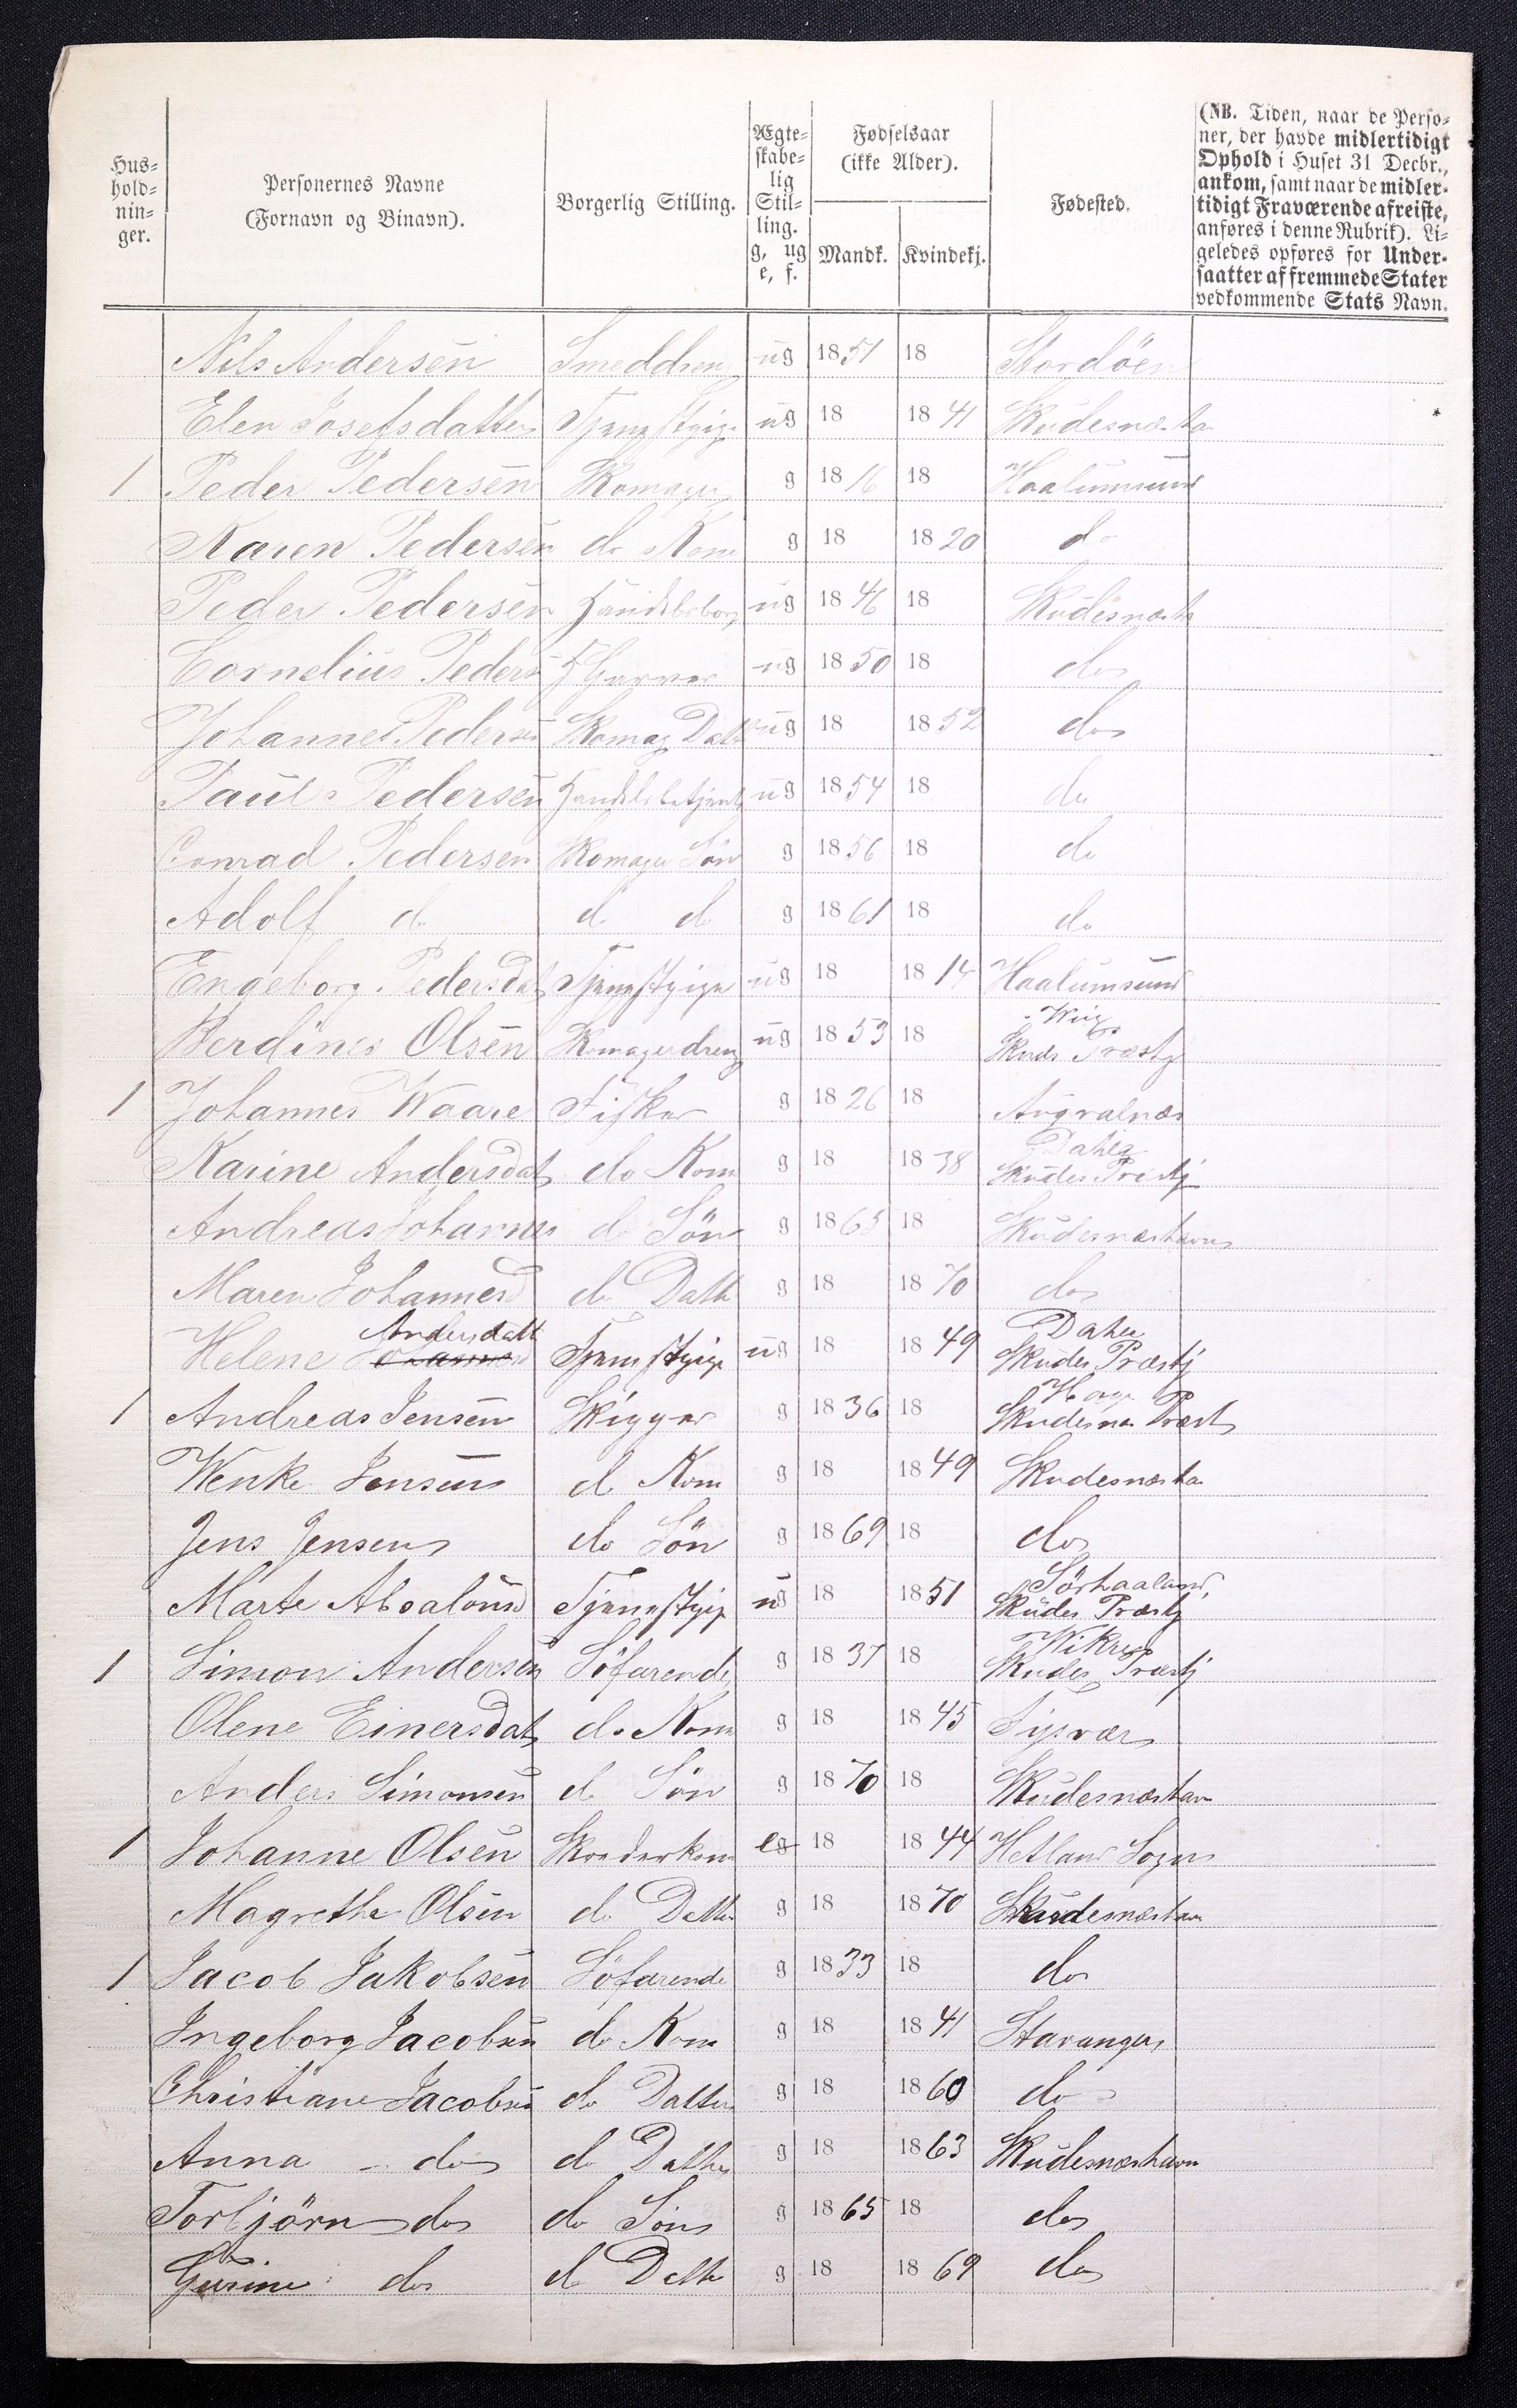 Hus-
hold-
nin-
ger.
Personernes Navne
(Fornavn og Binavn).
Borgerlig Stilling.
Ægte-
skabe-
lig
Stil-
ling.
g, ug
e, f.
Fødselsaar
(ikke Alder).
Mandk. Kvindekj.
Fødested.
(NB. Tiden, naar de Perso-
ner, der havde midlertidigt
Ophold i Huset 31 Decbr.,
ankom, samt naar de midler-
tidigt Fraværende afreiste,
anføres i denne Rubrik). Li-
geledes opføres for Under-
saatter af fremmede Stater
vedkommende Stats Navn.
Nils Andersen Smeddreng ug 1851 18 Stordöen
Elen Josefsdatter Tjenestpige ug 18 1841 Skudesnæsha
1 Peder Pedersen Skomager g 1816 18 Haalumsund
Karen Pedersen do Kone g 18 1820 do
Peder Pedersen Handelsborg ug 1846 18 Skudesnæsh
Cornelius Peders Garver ug 1850 18 do
Johanne Pedersen Skomag Datt ug 18 1852 do
Paul Pedersen Handelsbetjent ug 1854 18 do
Conrad Pedersen Skomager Sön g 1856 18 do
Adolf do do do g 1861 18 do
Engeborg Pedersdat Tjenestpige ug 18 1814 Haalumsund
Berdines Olsen Skomagerdreng ug 1853 18 Skuds Præstg
1 Johannes Waare Fisker g 1826 18 Augvalnæs
Karine Andersdat do Kone g 18 1838 Dahle Skudes Præstgj
Andreas Johannes do Sön g 1865 18 Skudesnæshavn
Maren Johannesd do Datte g 18 1870 do
Andersdatt
Helene Tjenestpige ug 18 1849 Dahle Skudes Præstgj
1 Andreas Jensen Skipper g 1836 18 Skudesnæ Præst
Wenke Jensen do Kone g 18 1849 Skudesnæsha
Jens Jensen do Sön g 1869 18 do
Marte Absalonsd Tjenestpige ug 18 1851 Sörhaaland, Skudes Præstgj
1 Simon Andersen Söfarende g 1837 18 Wikre Skudes Præstgj
Olene Einersdat do Kone g 18 1845 Tysvær
Anders Simonsen do Sön g 1870 18 Skudesnæshavn
1 Johanne Olsen Skrederkone e 18 1844 Hetland Sogn
Magrethe Olsen do Datter g 18 1870 Skudesnæshavn
1 Jacob Jakobsen Söfarende g 1833 18 do
Ingeborg Jacobsen do Kone g 18 1841 Stavanger
Christiane Jacobsen do Datter g 18 1860 do
Anna do do Datter g 18 1863 Skudesnæshavn
Torbjörn do do Sön g 1865 18 do
Gurine do do Datte g 18 1869 do